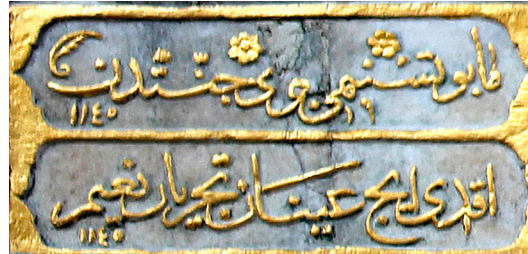 بو تسنیمی جوی جنّتدن ١١٤٥
اقدی ایچ عینان تجریان نعیم ١١٤٥